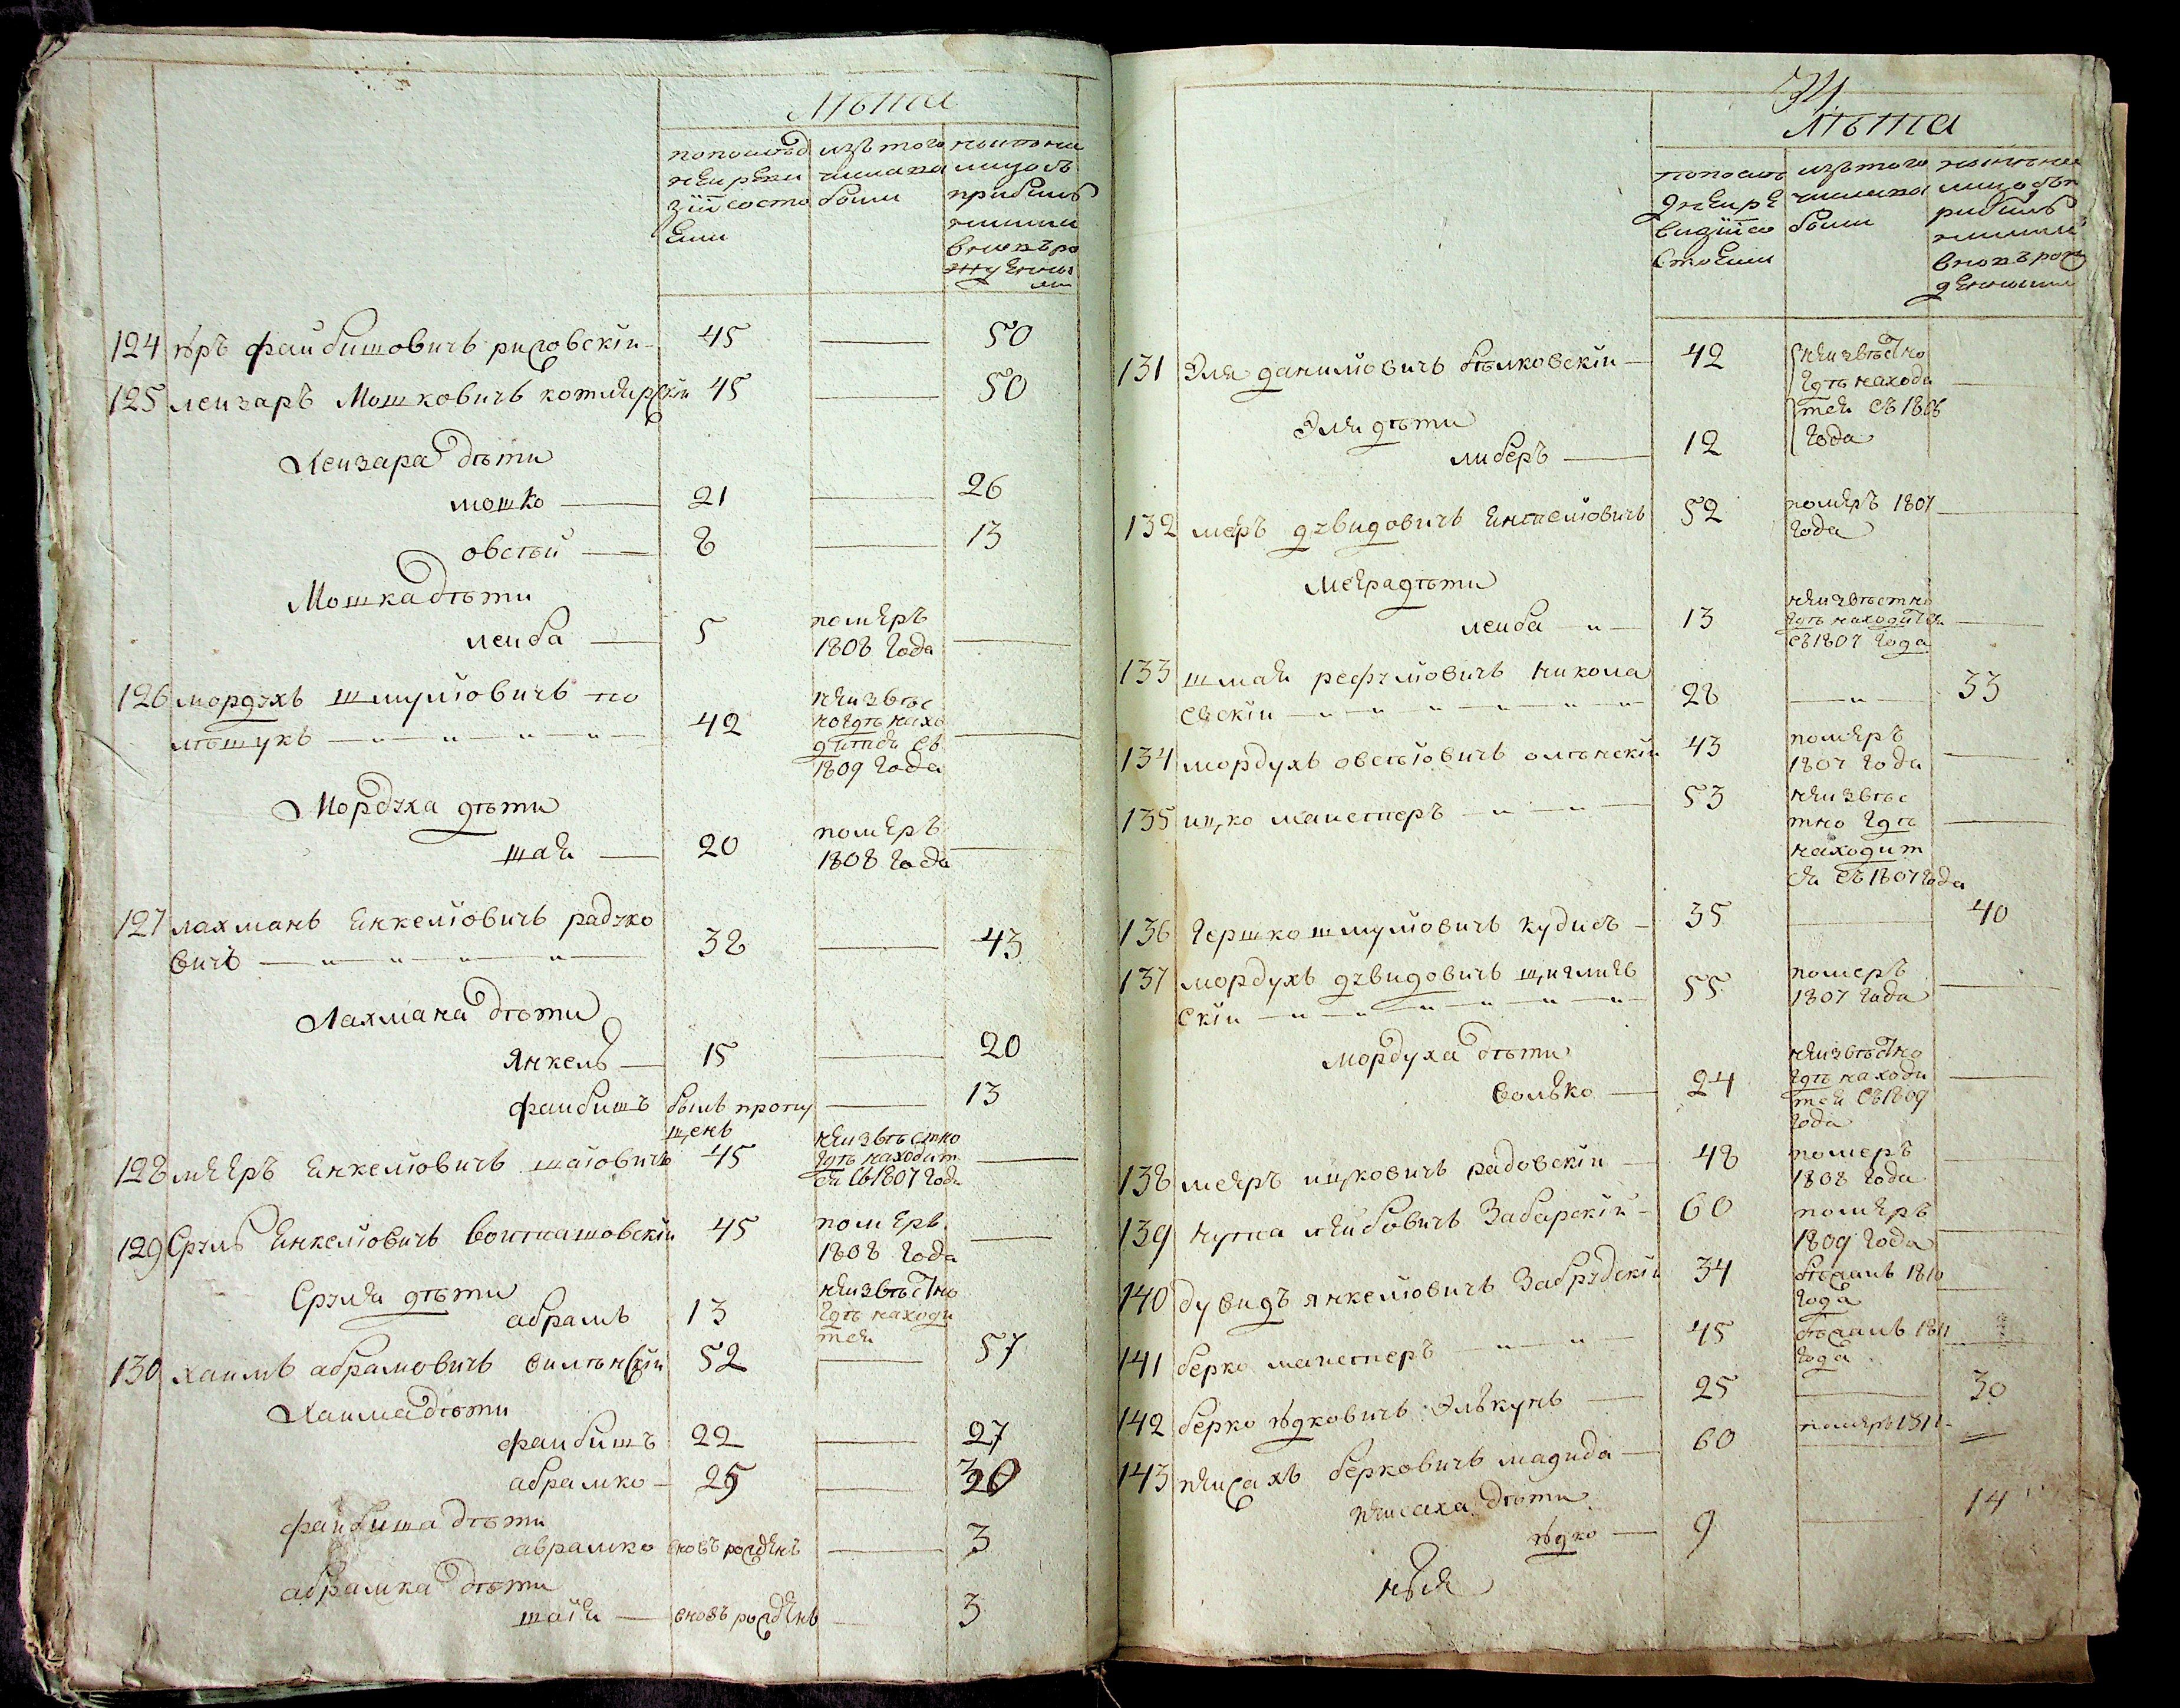 лѣта
попослѣд изъ того наитони
ней реви числа вы лицось
зіи состо были прибыв
яли шими
вновь ро
жденны
ми
124 ѣръ файбишовичъ риловскій 45 50
125 лейзаръ Мошковичъ котлярскій 45 50
Лейзара дѣти
мошко 21 26
овсѣй 8 13
Мошка дѣти
лейба 5 померъ
1808 года
126 мордухъ шмуліовичъ по неизвѣс
лѣшукъ 42 но гдѣ нахо
дится съ
1809 года
Мордуха дѣти
шая 20 померъ
1808 года
127 лахманъ Енкеліовичъ радуко
вичъ 38 43
Лахмана дѣти
Янкель 15 20
файбишъ былъ пропу 13
щенъ
128 мееръ Енкеліовичъ шаіовичъ 45 неизвѣстно
гдѣ находит
ся съ 1807 года
129 Сруль Енкеліовичъ войташовскій 45 померъ
1808 года
Сруля дѣти
абрамъ 13 неизвѣстно
гдѣ находи
тся
130 хаимъ абрамовичъ вилѣнскій 52 57
Хаима дѣти
файбишъ 22 27
абрамко 25 30
файбиша дѣти
аврамко вновь рожденъ 3
абрамка дѣти
шаія вновь рожденъ 3
лѣта
попослѣ изъ того нынѣ на
дней ре числа вы лицо съ п
визіи со были рибыв
стояли шими
вновь рож
денными
131 Эля даниліовичъ бѣлковскій 42 неизвѣстно
гдѣ находи
тся съ 1806
года
Эли дѣти
либеръ 12
132 меръ дувидовичъ 52 померъ 1807
года
Мейра дѣти
лейба 13 неизвѣстно
гдѣ находится
съ 1807 года
133 шмая рефуліовичъ никола
евскій 28 33
134 мордухъ овсѣіовичъ олѣнскій 43 померъ
1807 года
135 ицко маистеръ 53 неизвѣс
тно гдѣ
находит
ся съ 1807 года
136 Гершко шмуліовичъ кудисъ 35 40
137 мордухъ дувидовичъ
скій 55 померъ
1807 года
мордуха дѣти
волько 24 неизвѣстно
гдѣ находи
тся съ 1809
года
138 меяръ ицковичъ радовскій 48 померъ
1808 года
139 нутка лейбовичъ Забарскій 60 померъ
1809 года
140 дувидъ янкеліовичъ Забрудскій 34 бѣжалъ 1810
года
141 берко маистеръ 45 бѣжалъ 1811
года
142 берко ѣдковичъ Элькунъ 25 30
143 пейсахъ берковичъ магида 60 померъ 1811
пейсаха дѣти
ѣдко 9 14